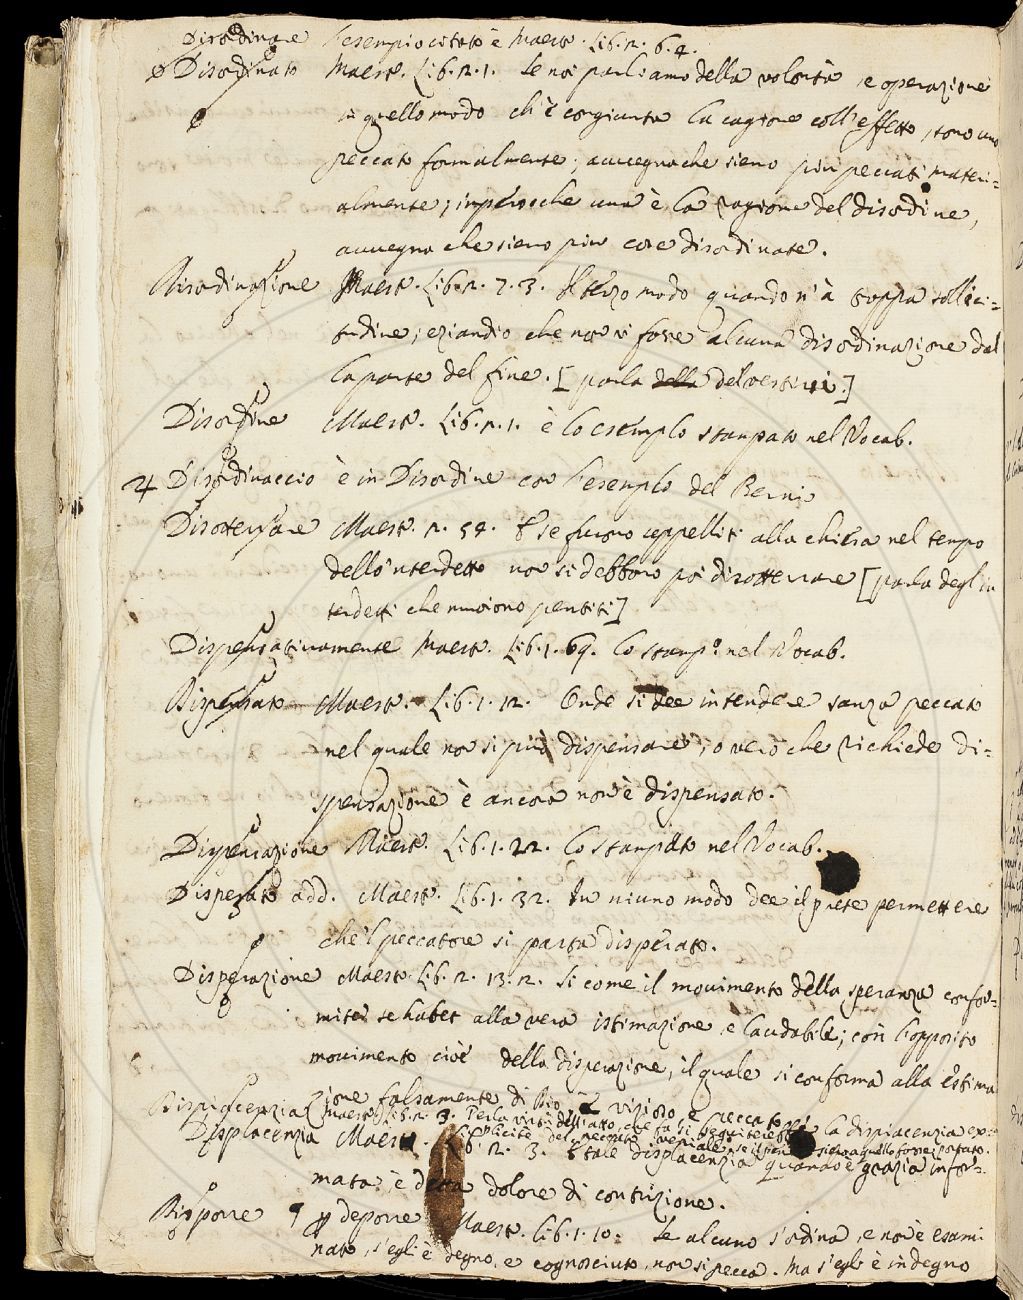 Disordinare l'esempio citato è Maest. Lib. 2. 6. 4.
Disordinato Maest. Lib. 2. 1. Se noi parliamo della volontà, e operazione
in quello modo ch'è congiunta la cagione coll'effetto, sono uno
peccato formalmente; avvegnache sieno più peccati materi=
almente; imperocche una è la ragione del disordine,
avvegna che sieno più cose disordinate.
Disordinazione Maest. Lib. 2. 7. 3. Il terzo modo quando v'à troppa solleci=
tudine; eziandio che non vi fosse alcuna disordinazione dal
la parte del fine. [parla della del vestirsi.]
Disordine Maest. Lib. 2. 1. è lo esemplo stampato nel Vocab.
Disordinaccio è in Disordine con l'esemplo del Berni
Disotterrare Maest. 2. 54. E se furono seppelliti alla chiesa nel tempo
dello 'nterdetto non si debbono poi disotterrare [parla degl'in
terdetti che muoiono pentiti]
Dispensativamente Maest. Lib. 1. 69. Lo stamp.º nel Vocab.
Dispensato Maest. Lib. 1. 12. Onde si dee intendere sanza peccato
nel quale non si può dispensare, o vero che richiede di=
spensazione e ancora non è dispensato.
Dispensazione Maest. Lib. 1. 22. Lo stampato nel Vocab.
Disperato add. Maest. Lib. 1. 32. In niuno modo dee il prete permettere
che 'l peccatore si parta disperato.
Disperazione Maest. Lib. 2. 13. 2. Si come il movimento della speranza confor=
mite se habet alla vera istimazione e laudabile; così l'opposito
movimento cioè della disperazione, il quale si conforma alla estima
zione falsamente di Dio è vizioso e peccato
Dispiacenzia Maest. Lib. 2. 3. Per la virtù dell'atto, che fa si seguiterebbe la dispiacenzia ex=
plicite del peccato veniale, se il pensiero a quello fosse portato.
Displacenzia Maest. Lib. 2. 3. E tale displacenzia quando è grazia infor=
mata è detta dolore di contrizione.
Disporre p deporre Maest. Lib. 1. 10. Se alcuno s'ordina, e non è esami
nato, s'egli è degno, e cognosciuto, non si pecca. Ma s'egli è indegno